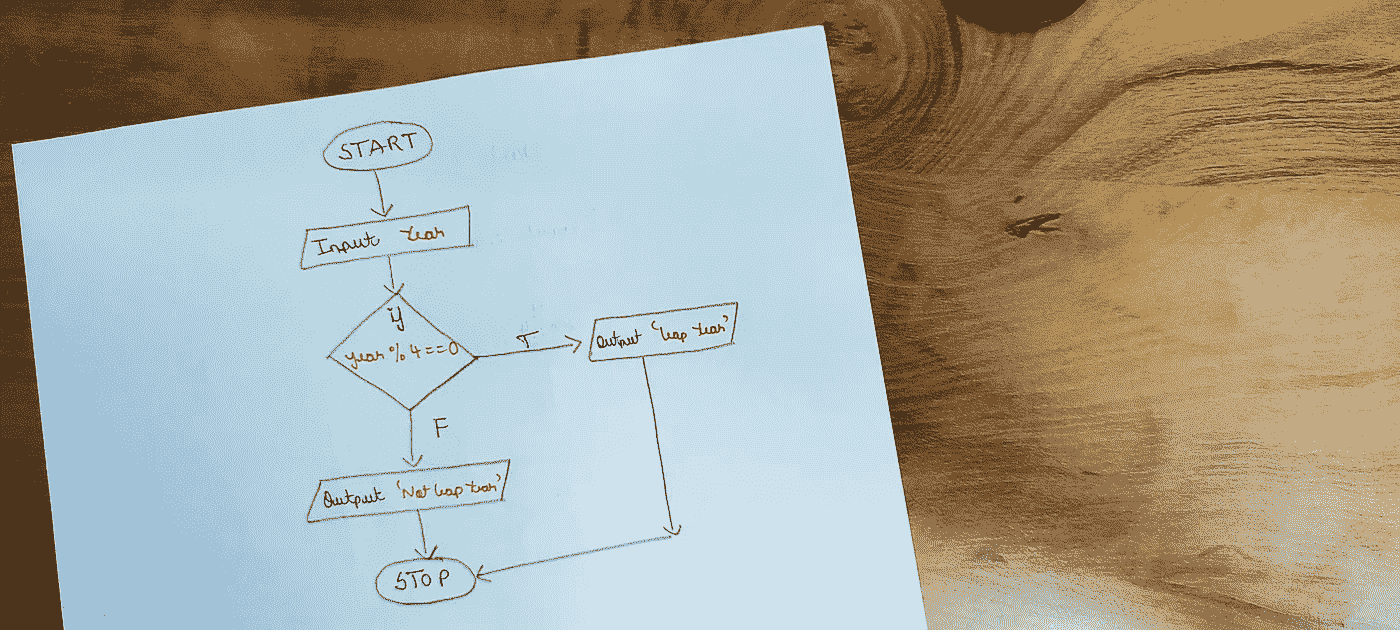 START
Input Year
if
year % 4 == 0
T
Output 'Leap Year'
F
Output 'Not Leap Year'
STOP